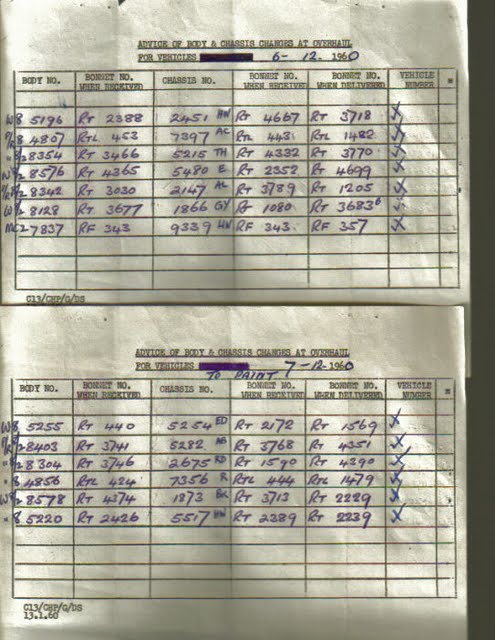 ADVICE OF BODY & CHASSIS CHANGES AT OVERHAUL
FOR VEHICLES 6-12. 1960
BODY NO. BONNET NO. WHEN RECEIVED CHASSIS NO. BONNET NO. WHEN RECEIVED BONNET NO. WHEN DELIVERED VEHICLE NUMBER
W8 5196 RT 2388 2451 HW RT 4667 RT 3718 X
8 4807 RTL 453 7397 AC RTL 443 RTL 1482 X
8354 RT 3466 5215 TH RT 4332 RT 3770 X
8576 RT 4365 5480 E RT 2352 RT 4699 X
8342 RT 3030 2147 AL RT 3789 RT 1205 X
8128 RT 3677 1866 GY RT 1080 RT 3683 X
7837 RF 343 9339 HW RF 343 RF 357 X
C13/CHP/G/DS
ADVICE OF BODY & CHASSIS CHANGES AT OVERHAUL
FOR VEHICLES 7-12-1960
TO PAINT
BODY NO. BONNET NO. WHEN RECEIVED CHASSIS NO. BONNET NO. WHEN RECEIVED BONNET NO. WHEN DELIVERED VEHICLE NUMBER
W8 5255 RT 440 5254 ED RT 2172 RT 1569 X
8403 RT 3741 5282 AB RT 3768 RT 4351 X
8304 RT 3746 2675 RD RT 1590 RT 4390 X
8 4856 RTL 424 7356 R RTL 444 RTL 1479 X
8578 RT 4374 1873 BK RT 3713 RT 2229 X
" 8 5220 RT 2426 5517 HW RT 2389 RT 2239 X
C13/CHP/G/DS
13.1.60